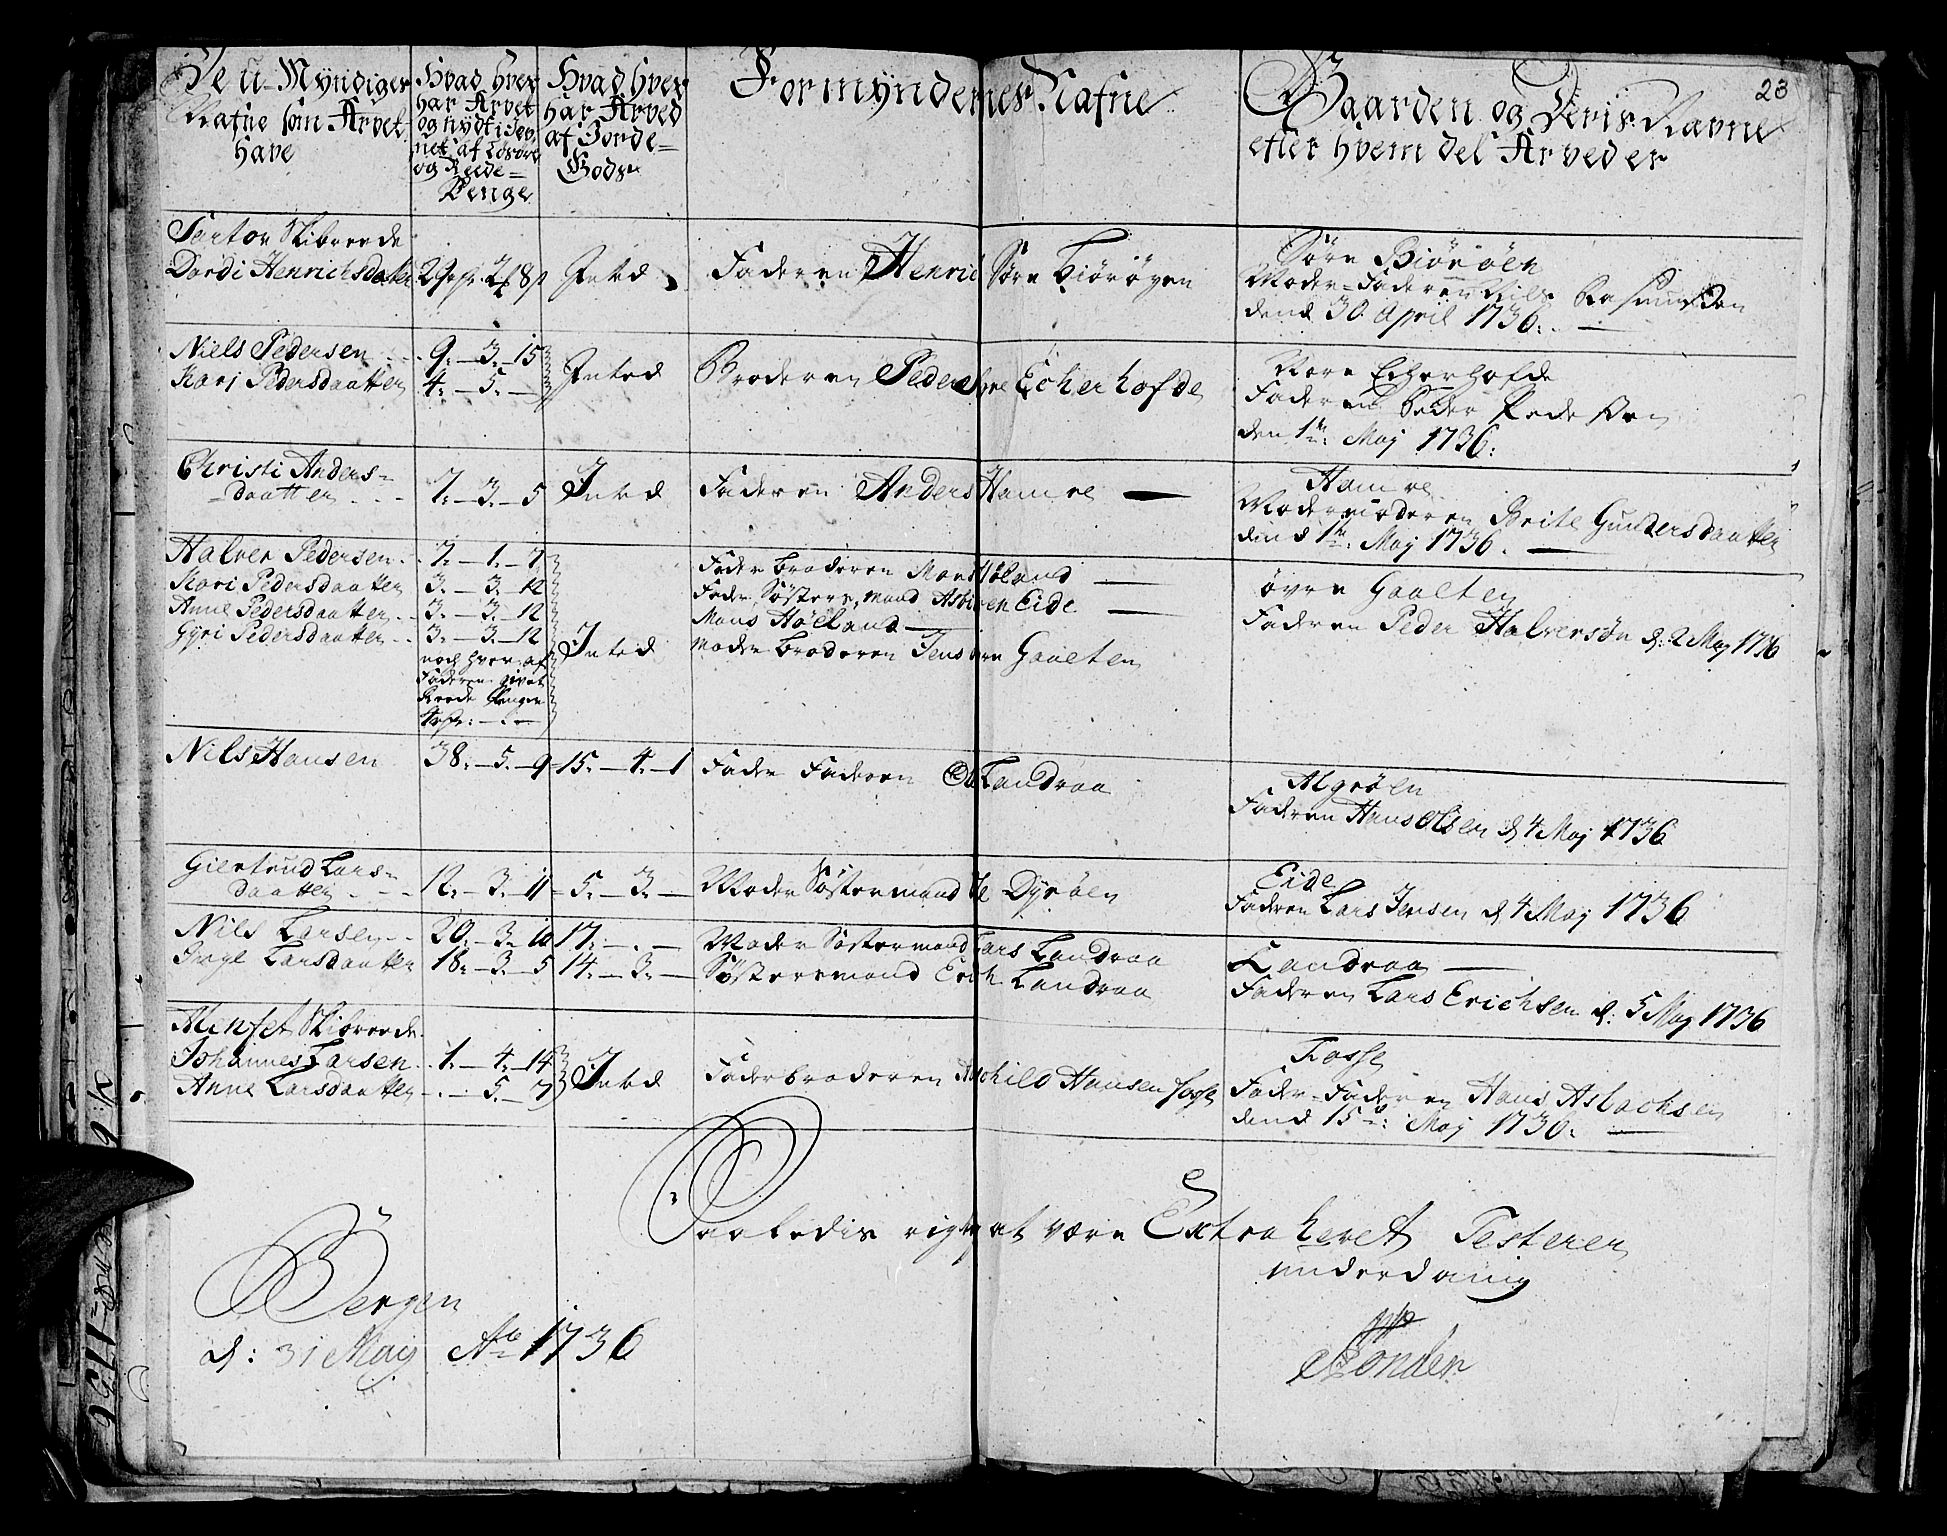 23
De U-Myndiges
Nafne som Arvet
have
Hvad hver
har Arvet
og nydt i Sen
net af Løsøre
og Reede-
Penge
Hvad hver
har Arved
af Jorde-
Gods
Formyndernes Nafne
Gaarden og Deris Navne
efter hvem del Arved er
Sartor Skibreede
Dordi Henrichsdatter
Inted
Faderen Henric Sørn Biørøyen
Sørn Biørøen
Moder-Faderen Nils Rasmussen
dend 30 April 1736.
Niels Pedersen 9.-3.-15
Kari Pedersdaatter 4.-5.-
Inted
Broderen Peder Echerhofde
Norn Echerhofde
Faderen Peder Pedersen
den 1te Maj 1736.
Christi Anders-
daatter 7.-3.-5
Inted
Faderen Anders Hamre
Hamre
Modermoderen Brite Gundersdaatter
dend 1te Maj 1736.
Halver Pedersen 7.-1.-7
Kari Pedersdaatter 3.-3.-12
Anne Pedersdaatter 3.-3.-12
Gyri Pedersdaatter 3.-3.-12
noch hver af
Faderen givet
Reede Penge
Inted
Fader Broderen Mons Høland
Fader Søsters Mand Asbiørn Eide
Mons Høland
Moder Broderen Jens Gaalten
øvre Gaalten
Faderen Peder Halversøn d: 2 Maj 1736
Nils Hansen 38.-5.-9 15.-4.-1
Fader Faderen Ole Landraa
Algrøen
Faderen Hans Olsen d 4 Maj 1736
Giertrud Lars-
daatter 12.-3.-11 5.-3.-
Moder Søstermand Dyrøen
Eide
Faderen Lars Jensen d 4 Maj 1736
Nils Larsen 20.-3.-10 17.-.-
Inge Larsdaatter 18.-3.-5 14.-3.-
Moder Søstermand Lars Landraa
Søstersmand Erich Landraa
Landraa
Faderen Lars Erichsen d: 5 Maj 1736
Alenfet Skibreede
Johannes Larsen 1.-4.-14
Anne Larsdaatter -.-5.-7
Inted
Faderbroderen Hansen Fosse
Fosse
Fader-Faderen Hans Asbachsen
dend 15de Maj 1736.
Saaledis rigtig at være Extraheret Testerer
underdanig
Bergen
d: 31 May Ao 1736